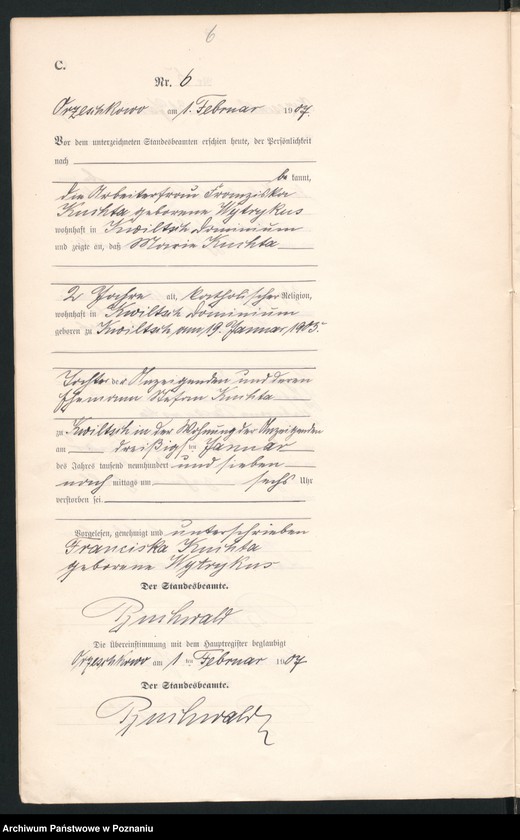 6
C.
Nr. 6
Orzeschkowo am 1. Februar 1907.
Vor dem unterzeichneten Standesbeamten erschien heute, der Persönlichkeit
nach
be kannt,
die Arbeiterfrau Franziska
Kuchta geborene Wytrykus
wohnhaft in Kwiltsch Dominium
und zeigte an, daß Marie Kuchta
2 Jahre alt, katholischer Religion,
wohnhaft in Kwiltsch Dominium
geboren zu Kwiltsch, am 19. Januar, 1905.
Tochter der Anzeigenden und deren
Ehemann Stefan Kuchta
zu Kwiltsch in der Wohnung der Anzeigenden
am dreißigsten Januar
des Jahres tausend neunhundert und sieben
nach mittags um sechs Uhr
verstorben sei.
Vorgelesen, genehmigt und unterschrieben
Franciska Kuchta
geborene Wytrykus
Der Standesbeamte.
Buchwald
Die Übereinstimmung mit dem Hauptregister beglaubigt
Orzeschkowo am 1 ten Februar 1907
Der Standesbeamte.
Buchwald
Archiwum Państwowe w Poznaniu